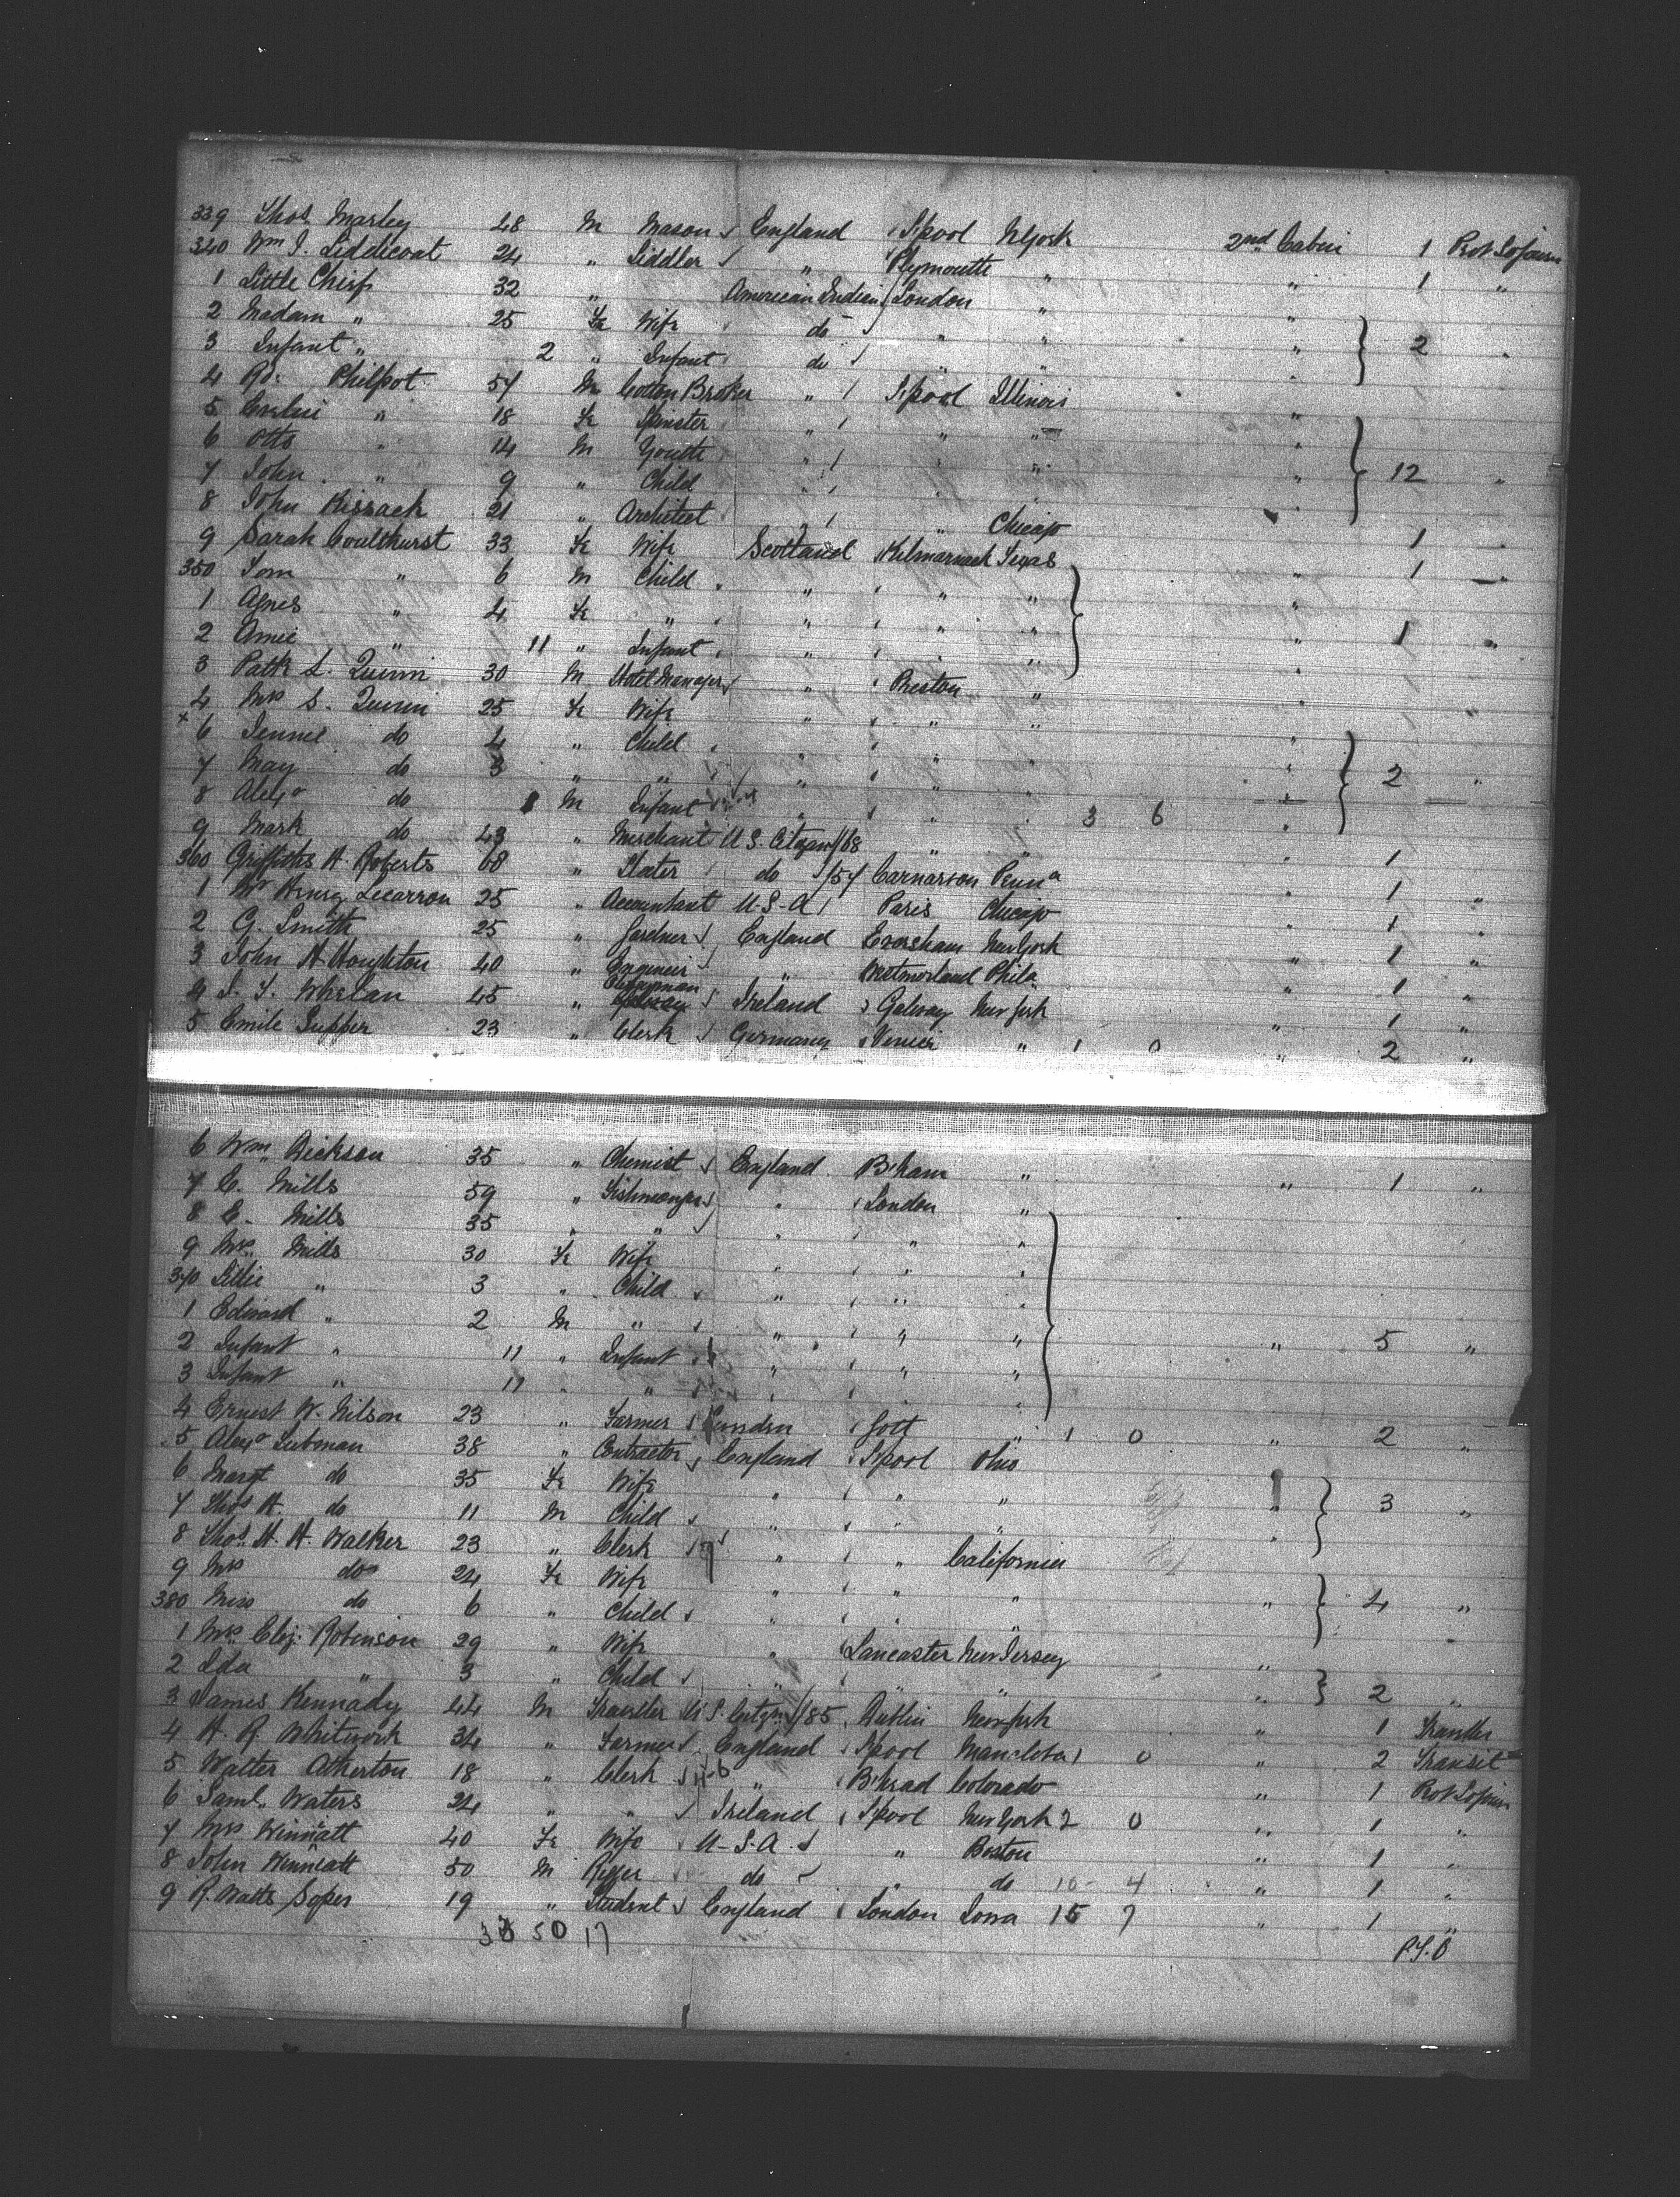 339 Thos. Marley 48 M Mason England L'pool N York 2nd Cabin 1 Prot Sojourn
340 Wm J. Liddicoat 24 " " Plymouth " " 1 "
1 Little Chief 32 " American Indian London " "
2 Madam " 25 Fe Wife do " " " 2 "
3 Infant " 2 " Infant do " " "
4 Philpot 54 M Cotton Broker " L'pool Illinois "
5 " 18 Fe Spinster " " " "
6 Otto " 14 M Youth " " " " 12 "
7 John " 9 " Child " " " "
8 John Kissack 21 " Architect " " Chicago 1 "
9 Sarah Coulthurst 33 Fe Wife Scotland Kilmarnock Texas " 1 "
350 Tom " 6 M Child " " " "
1 Agnes " 4 Fe " " " " " 1 "
2 Amie " 11 " Infant " " " "
3 Patk L. Quinn 30 M Hotel Manager " Preston " "
4 Mrs S. Quinn 25 Fe Wife " " " "
x 6 Jennie do 4 " Child " " " "
7 May do 3 " " " " " " 2 "
8 Alexr do M Infant " " " 3 6 "
9 Mark do 43 " Merchant U.S. Citizen /68 " " " 1
360 Griffiths H. Roberts 68 " Slater do /54 Carnarvon Penna " 1 "
1 Mr Henry Lecarron 25 " Accountant U.S.A Paris Chicago " 1 "
2 G. Smith 25 " Gardner England Evesham New York " 1 "
3 John H Houghton 40 " Engineer " Westmorland Phila " 1 "
4 Whelan 45 " Clergyman Ireland Galway New York " 1 "
5 Emile Supper 23 " Clerk Germany Venice " 1 0 " 2 "
6 Wm Dickson 35 " Chemist England B'ham " " 1 "
7 C. Mills 59 " Fishmonger " London "
8 C. Mills 35 " " " " "
9 Mrs. Mills 30 Fe Wife " " "
370 Lillie " 3 " Child " " "
1 Edward " 2 M " " " " " 5 "
2 Infant " 11 " Infant " " "
3 Infant " 11 " " " " "
4 Ernest W. Nilson 23 " Farmer Sweden Gott " 1 0 " 2 "
5 Alexr Lubman 38 " Contractor England L'pool Ohio
6 Margt do 35 Fe Wife " " " " 3 "
7 Thos H. do 11 M Child " " " "
8 Thos. H. H. Walker 23 " Clerk " " California
9 Mrs do 24 Fe Wife " " " " 4 "
380 Miss do 6 " Child " " "
1 Mrs. Eliz. Robinson 29 " Wife " Lancaster New Jersey "
2 Ida " 3 " Child " " " " 2 "
3 James Kennady 44 M Traveller U.S. Citizn /85 Dublin New York " 1 Traveller
4 H. R. Whitwork 34 " Farmer England L'pool Manitoba 1 0 " 2 Transit
5 Walter Atherton 18 " Clerk " B'head Colorado " 1 Prot Sojourn
6 Saml. Waters 24 " " Ireland L'pool New York 2 0 " 1 "
7 Mrs Winnatt 40 Fe Wife U-S.A. " Boston " 1 "
8 John Winnatt 50 M do " do 10 - 4 " 1 "
9 R. Watts Soper 19 " Student England London Iowa 15 7 " 1 "
33 50 17
P.T.O